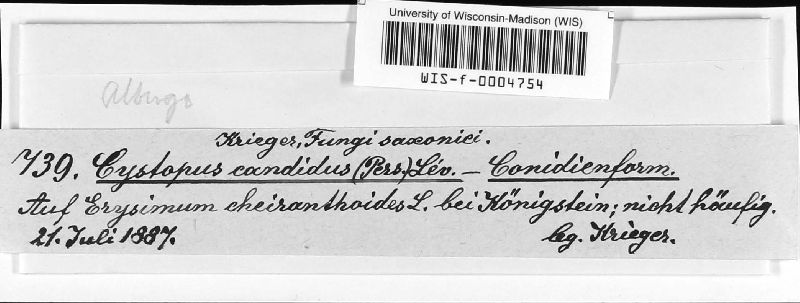 University of Wisconsin-Madison (WIS)
WIS-f-0004754
Albugo
Krieger, Fungi saxonici.
739. Cystopus candidus (Pers.) Lév. — Conidienform.
Auf Erysimum cheiranthoides L. bei Königstein; nicht häufig.
21. Juli 1887. leg. Krieger.